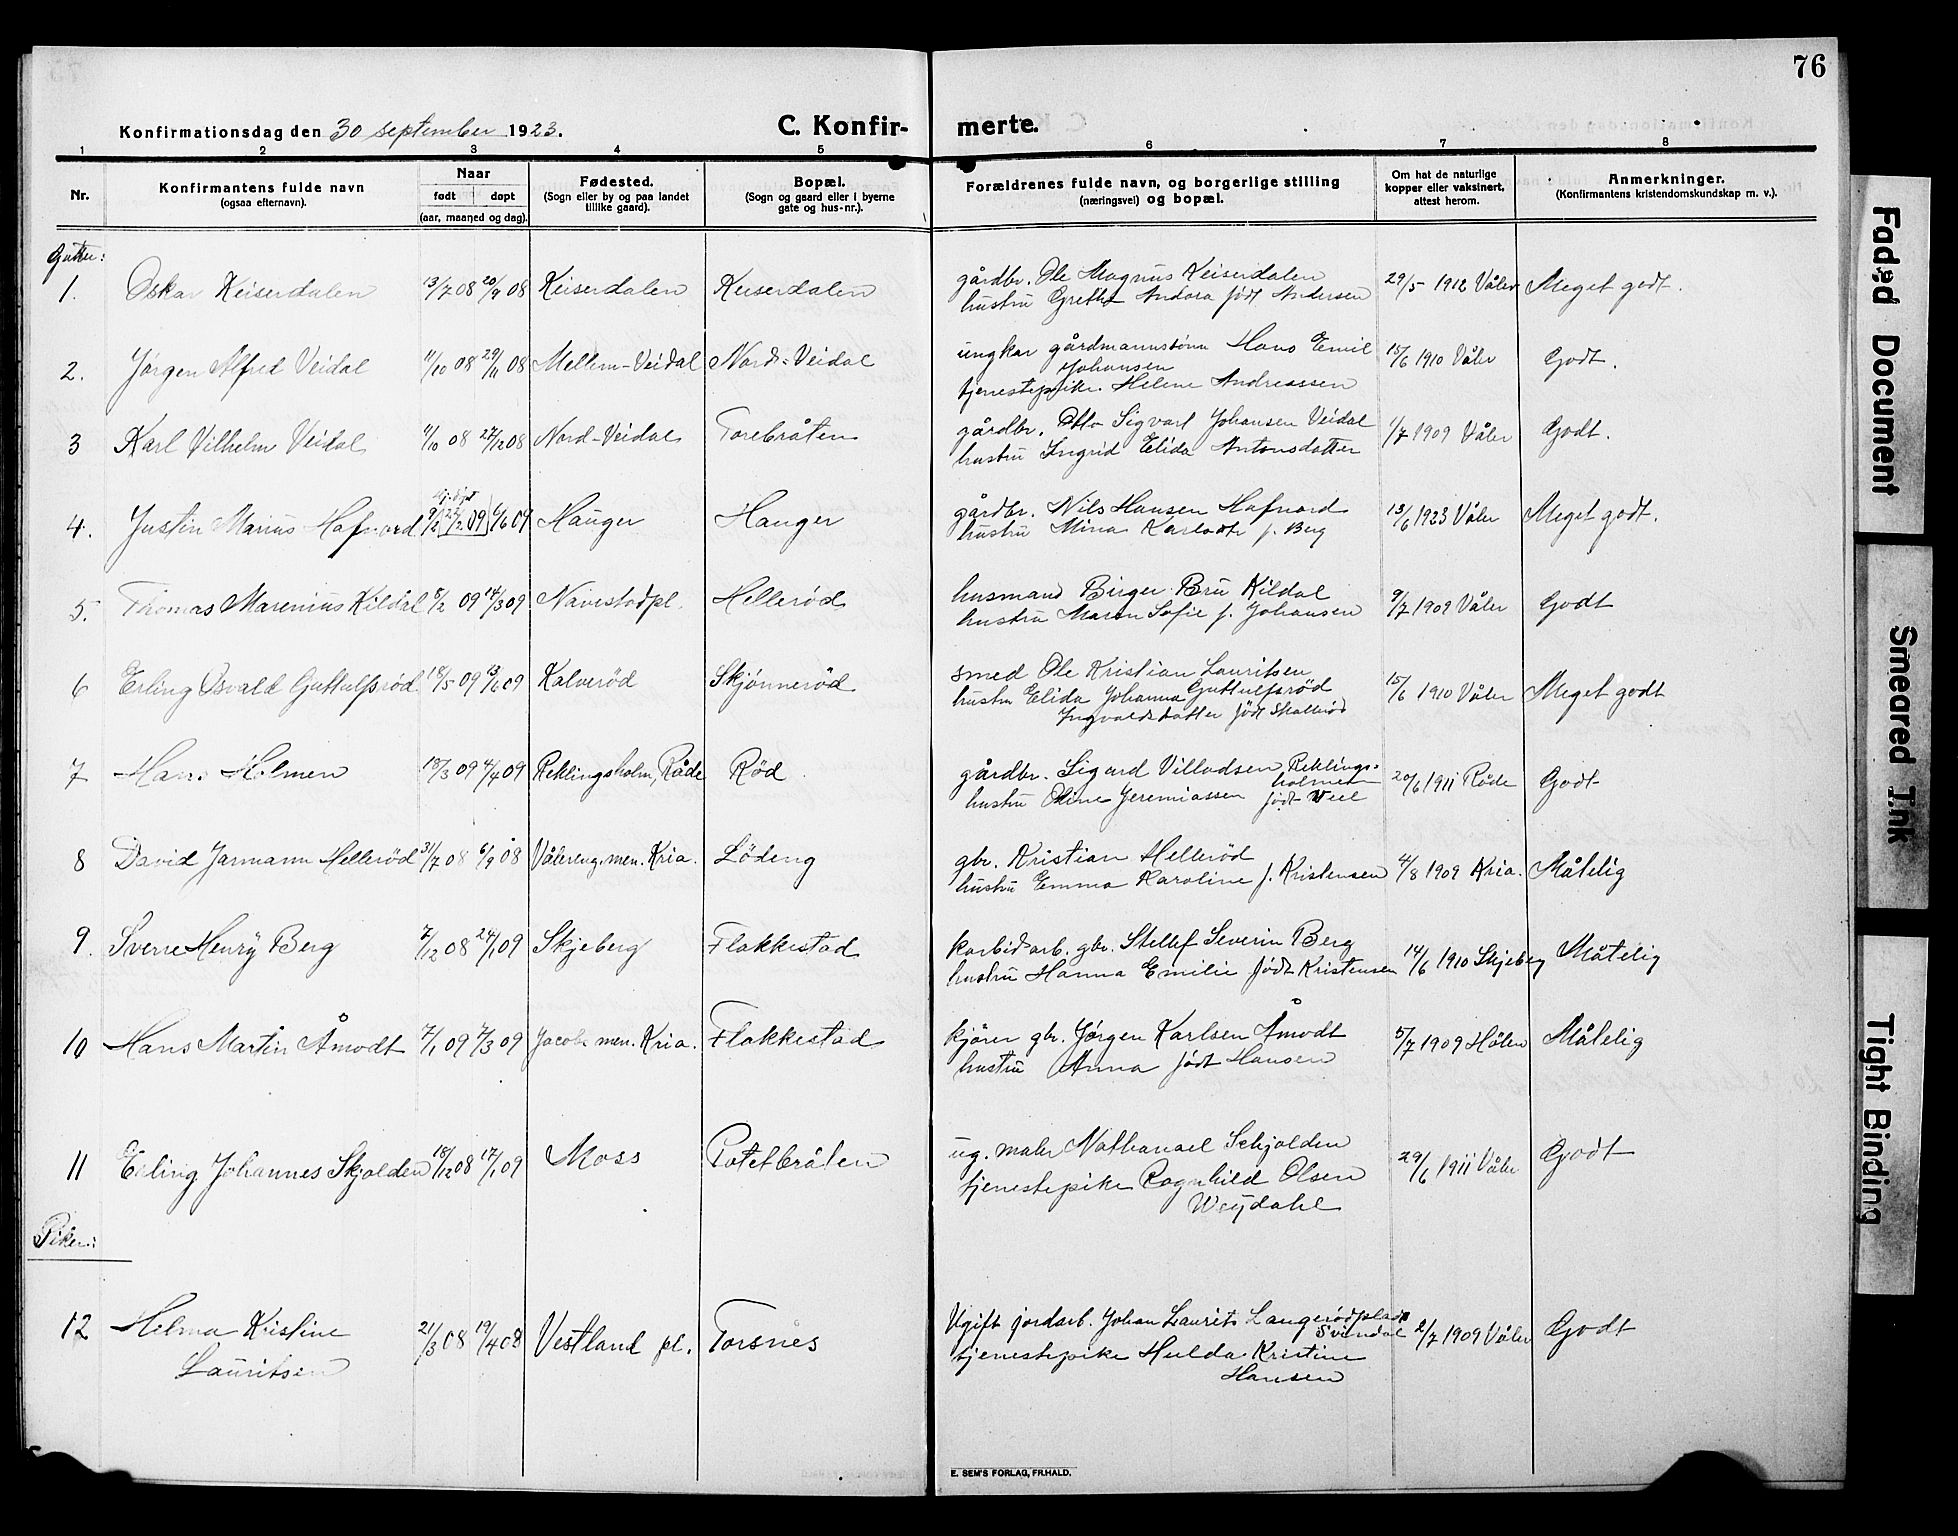 76
Konfirmationsdag den 30 september 1923.
C. Konfir-
merte.
1 2 3 4 5 6 7 8
Nr.
Konfirmantens fulde navn
(ogsaa efternavn).
Naar
født døpt
(aar, maaned og dag).
Fødested.
(Sogn eller by og paa landet
tillike gaard).
Bopæl.
(Sogn og gaard eller i byerne
gate og hus-nr.).
Forældrenes fulde navn, og borgerlige stilling
(næringsvei) og bopæl.
Om hat de naturlige
kopper eller vaksinert,
attest herom.
Anmerkninger.
(Konfirmantens kristendomskundskap m. v.).
Gutter:
1. Oskar Keiserdalen 13/7 08 20/9 08 Keiserdalen Keiserdalen gårdbr. Ole Magnus Keiserdalen 29/5 1912 Våler Meget godt.
hustru Grethe Andora født Andersen
2. Jørgen Alfred Veidal 11/10 08 29/11 08 Mellem-Veidal Nord-Veidal ungkar gårdmannssønn Hans Emil 15/6 1910 Våler Godt.
Johansen
tjenestepike. Helene Andreassen
3 Karl Vilhelm Veidal 11/10 08 27/12 08 Nord-Veidal Torebråten gårdbr. Otto Sigvart Johansen Veidal 1/7 1909 Våler Godt.
hustru Ingrid Elida Antonsdatter
4. Justin Marius Hafnord 9/2 09 6/6 09 Hauger Hauger gårdbr. Nils Hansen Hafnord 13/6 1923 Våler Meget godt.
hustru Mina Karlodt f. Berg
5. Thomas Marenius Kildal 8/2 09 14/3 09 Navestadpl. Hellerød husmand Birger Bru Kildal 9/7 1909 Våler Godt
hustru Maren Sofie f. Johansen
6 Erling Osvald Guttulfsrød 18/5 09 13/6 09 Kalverød Skjønnerød smed Ole Kristian Lauritsen 15/6 1910 Våler Meget godt
Guttulfsrød
hustru Elida Johanna
Ingvaldsdatter født Skallerød
7 Hans Holmen 18/3 09 4/4 09 Reklingsholm, Råde Rød gårdbr. Sigurd Villadsen Reklings- 20/6 1911 Råde Godt
holmen
hustru Oline Jeremiassen født Veel
8 David Jarmann Hellerød 31/7 08 6/9 08 Vålereng. men. Kria. Lødeng gbr. Kristian Hellerød 4/8 1909 Kria. Måtelig
hustru Emma Karoline f. Kristensen
9. Sverre Henry Berg 7/12 08 24/1 09 Skjeberg Flakkestad karbidarb. gbr. Stellef Severin Berg 14/6 1910 Skjeberg Måtelig
hustru Hanna Emilie født Kristensen
10 Hans Martin Åmodt 7/1 09 7/3 09 Jacobs men. Kria. Flakkestad kjører gbr. Jørgen Karlsen Åmodt 5/7 1909 Hølen Måtelig
hustru Anna født Hansen
11 Erling Johannes Skjolden 18/12 08 17/1 09 Moss Potetbråten ug. maler Nathanael Schjolden 29/6 1911 Våler Godt
tjenestepike Ragnhild Olsen
Weydahl
Piker:
12 Helma Kristine 21/3 08 19/4 08 Vestland pl. Torsnes Ugift jordarb. Johan Laurits Langerødplads 2/7 1909 Våler Godt
Svindal
Lauritsen
tjenestepike Hulda Kristine
Hansen
E. SEM'S FORLAG, FR.HALD.
Faded Document
Smeared Ink
Tight Binding